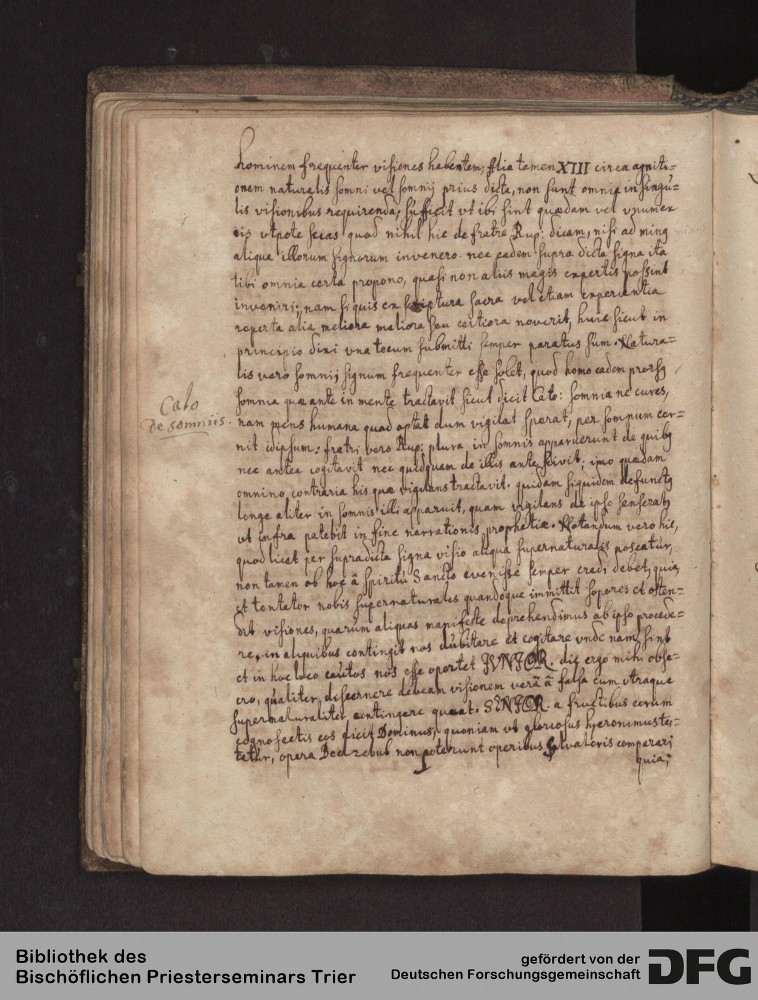 hominem frequenter visiones habentem; Alia tamen XIII circa agniti=
onem naturalis somni vel somnij prius dicta, non sunt omnia in singu=
lis visionibus requirenda, sufficit vt ibi sint quædam vel vnum ex
eis vtpote scias quod nihil hic de fratre Rup: dicam, nisi ad minq
aliqua illorum signorum invenero. nec eadem supra dicta signa ita
tibi omnia certa propono, quasi non aliis magis expertis possint
inveniri; nam si quis ex scriptura sacra vel etiam experientia
reperta alia meliora meliora seu certiora noverit, huic sicut in
principio dixi vna tecum submitti semper paratus sum. Natura=
lis vero somnij signum frequenter esse solet, quod homo eadem prorsq
somnia quæ ante in mente tractavit sicut dicit Cato: somnia ne cures,
nam mens humana quod optat dum vigilat sperat, per somnum cer=
nit idipsum: fratri vero Rup: plura in somnis apparuerunt de quibq
nec antea cogitavit nec quidquam de illis ante scivit; imo quædam
omnino contraria his quæ vigilans tractavit. quidam siquidem defunctq
longe aliter in somnis illi apparuit, quam vigilans de ipso senserat,
vt infra patebit in fine narrationis prophetiæ. Notandum vero hic,
quod licet per supradicta signa visio aliqua supernaturalis poscatur,
non tamen ob hoc â Spiritu Sancto evenisse semper credi debet, quia
et tentator nobis supernaturales quandoque immittit sopores et osten=
dit visiones, quarum aliquas manifeste deprehendimus ab ipso procede=
re, in aliquibus contingit nos dubitare et cogitare vnde nam sint
et in hoc loco cautos nos esse oportet IVNIOR. dic ergo mihi obse=
cro, qualiter discernere debeam visionem verã â falsa cum vtraque
supernaturaliter contingere queat. SENIOR. a fructibus eorum
cognoscetis eos dicit Dominus, quoniam vt gloriosus hyeronimus tes=
tetur, opera Beelzebub non poterunt operibus Salvatoris comparari
quia;
Cato
De somniis.
Bibliothek des
Bischöflichen Priesterseminars Trier
gefördert von der
Deutschen Forschungsgemeinschaft
DFG